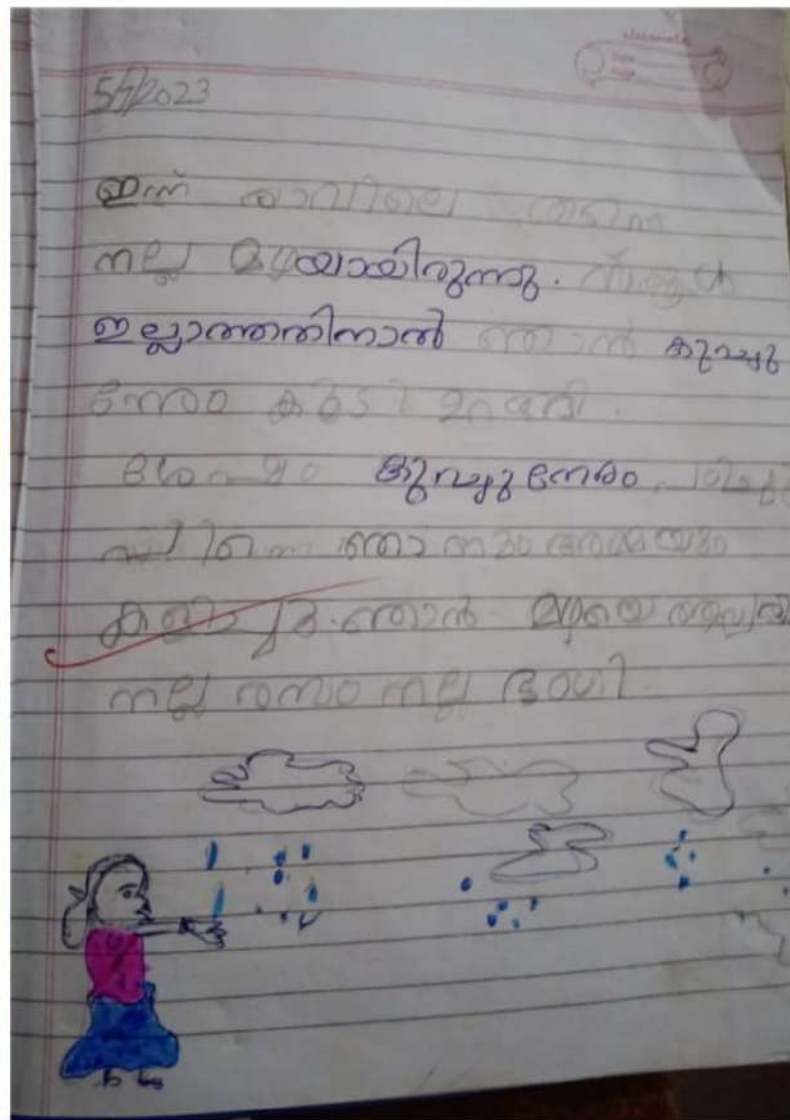 5/7/2023
ഇന്ന് രാവിലെ
നല്ല മഴയായിരുന്നു. സ്കൂൾ
ഇല്ലാത്തതിനാൽ ഞാൻ കുറച്ചു
നേരം കൂടി ഉറങ്ങി.
ശേഷം കുറച്ചു നേരം
പിന്നെ ഞാനും അമ്മയും
കളിച്ചു. ഞാൻ മഴയെ
നല്ല രസം നല്ല ഭംഗി.